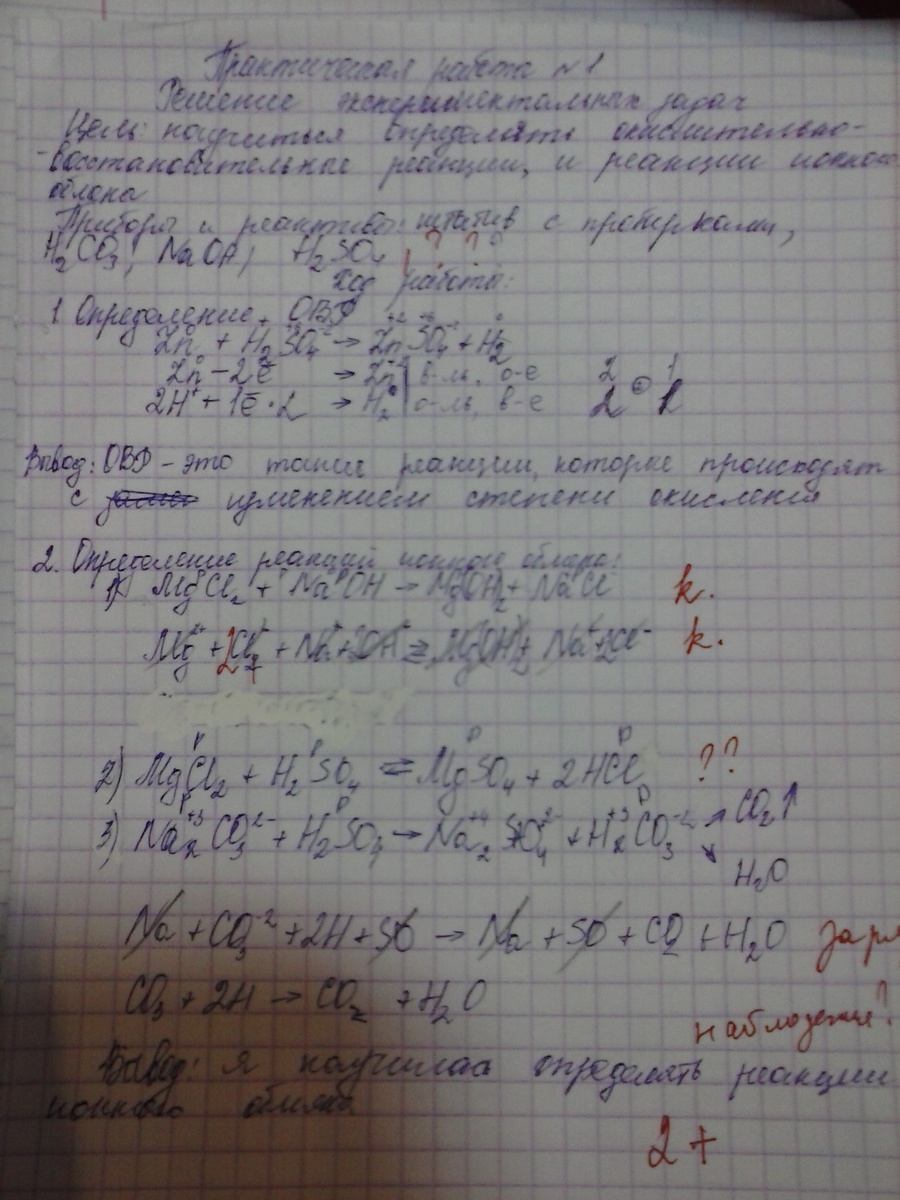 Практическая работа №1
Решение экспериментальных задач
Цель: научиться определять окислительно-
-восстановительные реакции, и реакции ионного
обмена
Приборы и реактивы: штатив с пробирками,
H₂CO₃; NaOH; H₂SO₄ ? ? ?
Ход работы:
1 Определение ОВР
Zn + H₂SO₄ → ZnSO₄ + H₂
Zn - 2ē → Zn в-ль, о-е 2 1
2H⁺ + 1ē·2 → H₂ о-ль, в-е 2 1
Вывод: ОВР - это такие реакции, которые происходят
с изменением степени окисления
2. Определение реакций ионного обмена:
1) MgCl₂ + NaOH → Mg(OH)₂ + NaCl к.
Mg + 2Cl + Na + 2OH ⇄ Mg(OH)₂ + Na + 2Cl⁻ к.
2) MgCl₂ + H₂SO₄ ⇄ MgSO₄ + 2HCl ??
3) Na₂CO₃ + H₂SO₄ → Na₂SO₄ + H₂CO₃ → CO₂↑
H₂O
Na + CO₃⁻² + 2H + SO → Na + SO + CO₂ + H₂O
CO₃ + 2H → CO₂ + H₂O
наблюдение?
Вывод: я научилась определять реакции
ионного обмена
2+